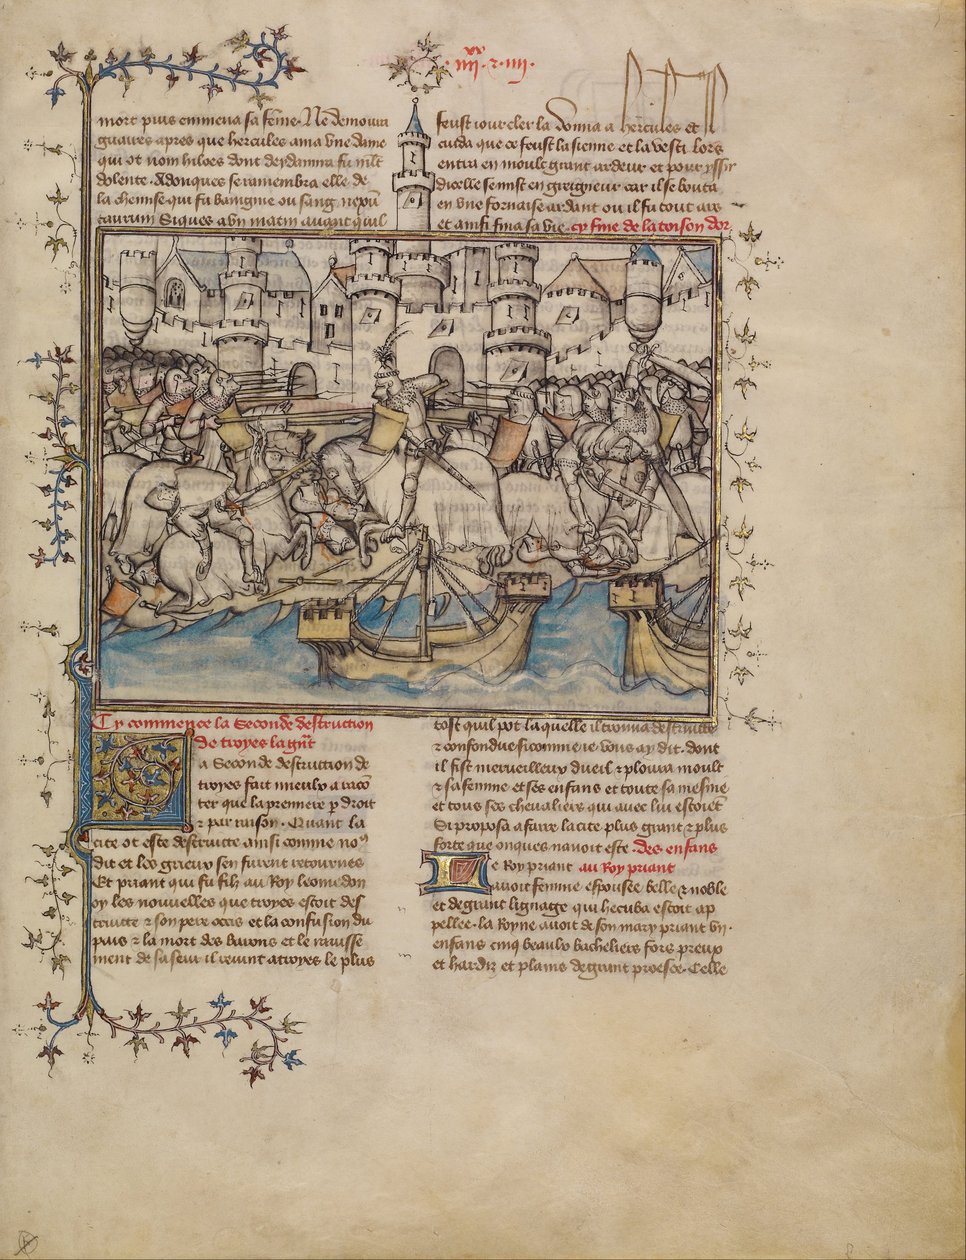 iiii^xx · z · iiii ·
mort puis emmena sa feme. Ne demoura
guaires apres que hercules ama une dame
qui ot nom hiloes dont deydamna fu mlt
dolente. Adonques se ramembra elle de
la chemise qui fu baingnie ou sang
taurum Si ques a un matin auant quil
feust iour cler la donna a hercules et
cuida que ce feust la sienne et la vesti lors
entra en moult grant ardeur et pour yssir
dicelle se mist en greigneur car il se bouta
en une fornaise ardant ou il fu tout ars
et ainsi fina sa vie. cy fine de la toison dor
Cy commence la Seconde destruction
de troyes la gnt
La Seconde destruction de
troyes fait mieulx a racō
ter que la premiere p droit
z par raison. Quant la
cite ot este destruitte ainsi comme no9
dit et les grieux sen furent retournes
Et priant qui fu filz au Roy leomedon
oy les nouuelles que troyes estoit des
truitte z son pere occis et la confusion du
pais z la mort des barons et le rauisse
ment de sa seur il reuint a troyes le plus
tost quil pot laquelle il trouua destruitte
z confondue si comme ie vous ay dit. dont
il fist merueilleux dueil z ploura moult
z sa femme et ses enfans et toute sa mesme
et tous ses cheualiers qui auec lui estoiet
Si proposa a faire la cite plus grant z plus
forte que onques nauoit este. des enfans
Le Roy priant au Roy priant
auoit femme espousee belle z noble
et de grant lignage qui hecuba estoit ap
pellee. la Royne auoit de son mary priant vii.
enfans cinq beaulx bacheliers fors preux
et hardiz et plains de grant proesce. Celle